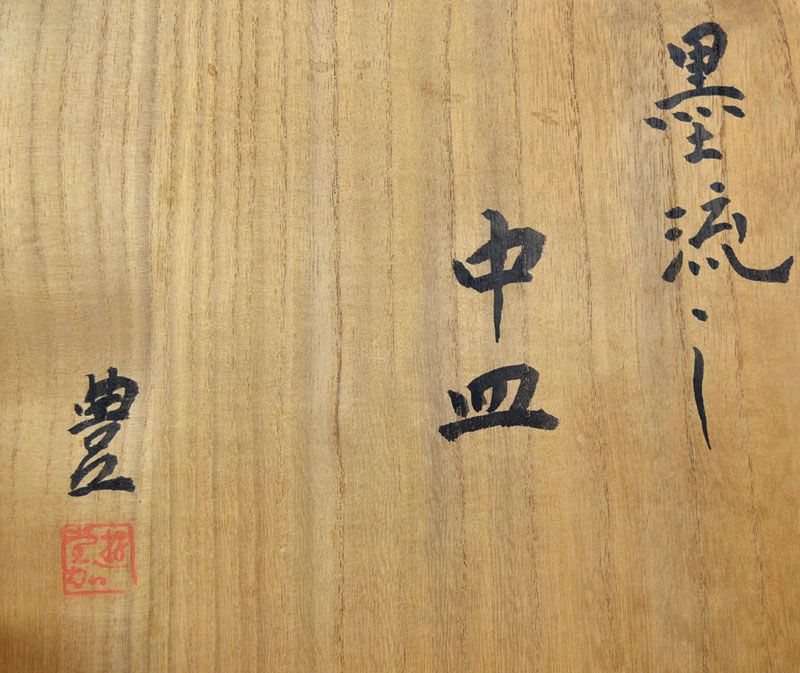 墨流し
中皿
豊